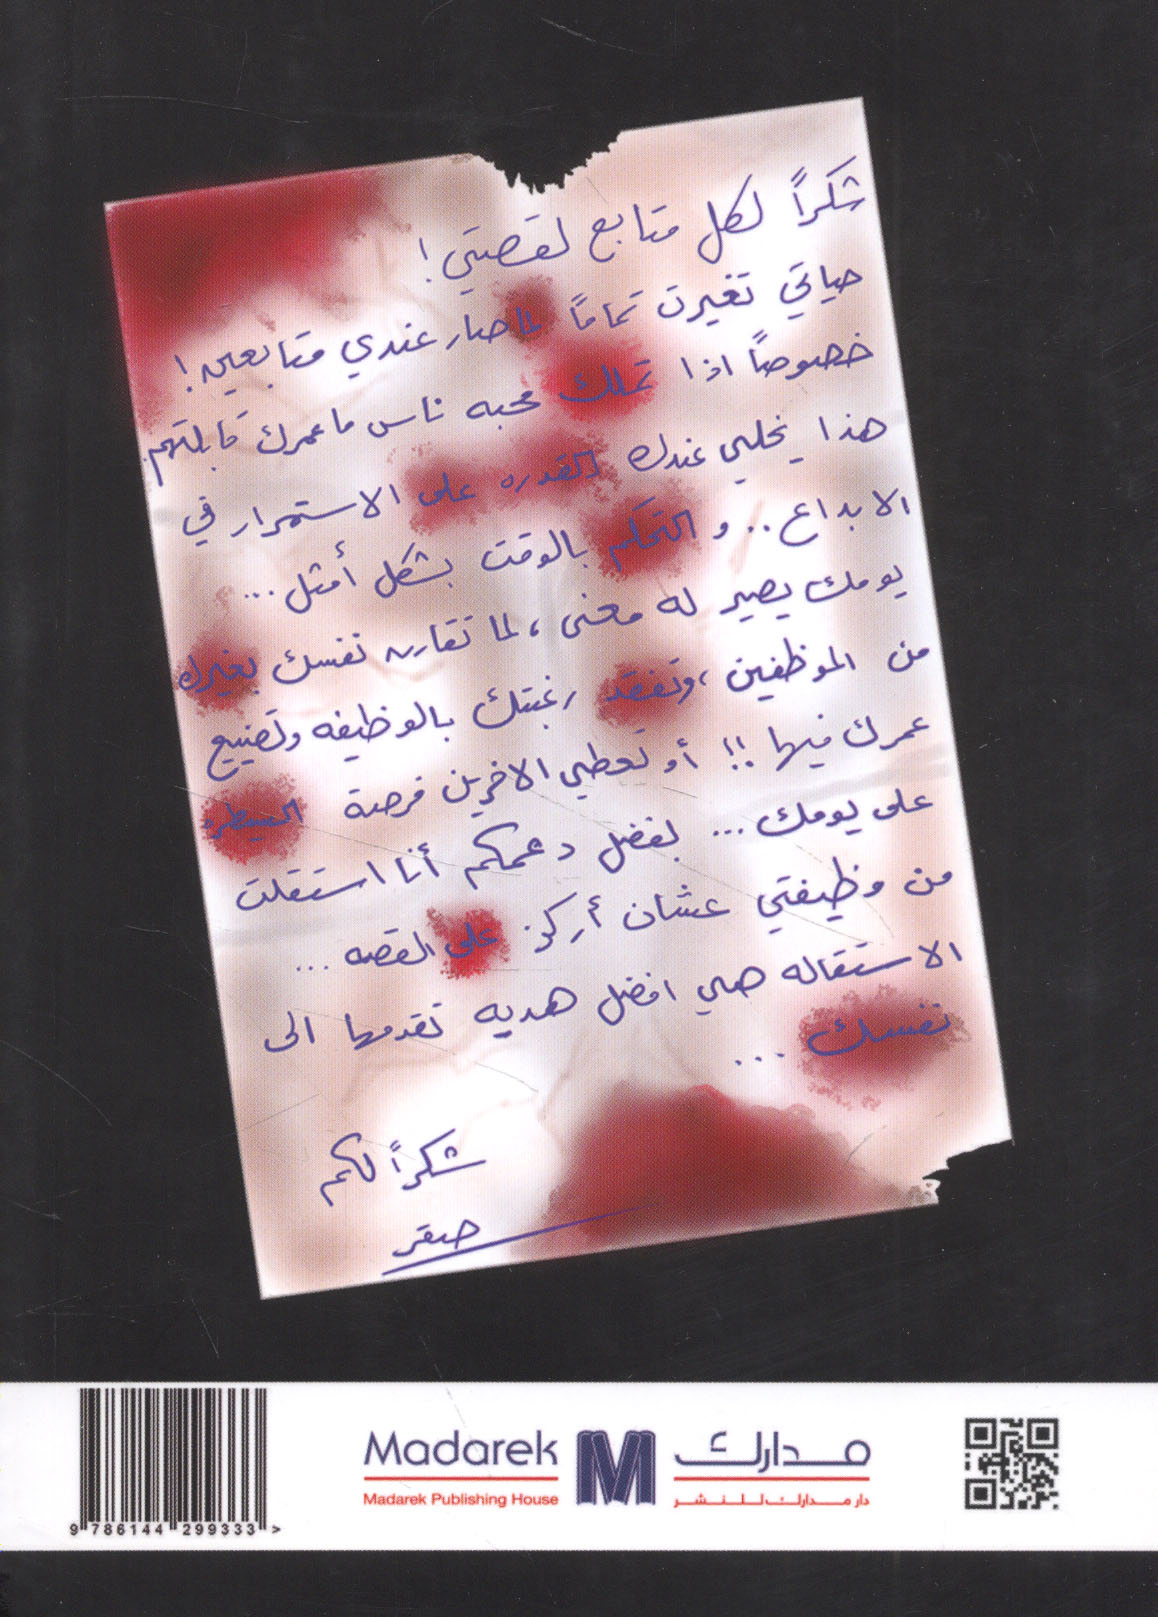 شكراً لكل متابع لقصتي!
حياتي تغيرت تماماً لما صار عندي متابعين!
خصوصاً اذا تملك محبه ناس ما عمرك قابلتهم.
هذا يخلي عندك القدره على الاستمرار في
الابداع.. و التحكم بالوقت بشكل أمثل...
يومك يصير له معنى، لما تقارن نفسك بغيرك
من الموظفين، وتفقد رغبتك بالوظيفه وتضييع
عمرك فيها!! أو تعطي الاخرين فرصة السيطره
على يومك... بفضل دعمكم أنا استقلت
من وظيفتي عشان أركز على القصه...
الاستقاله هي افضل هديه تقدمها الى
نفسك...
شكراً لكم
صقر
9 786144 299333 >
Madarek
Madarek Publishing House
M
مدارك
دار مدارك للنشر